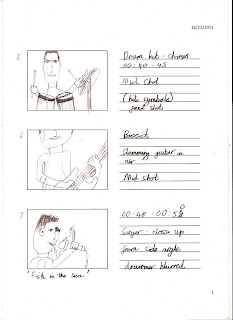 16/12/2011
5
Drum kit - chorus
00:40 - 45
Mid shot
(hits symbols)
front shot
6
Bassist
Slamming guitar in
air
Mid shot
7
00:48 - 00:52
Singer - close up
from side angle
drummer blurred
"Fish in the Sea"
1